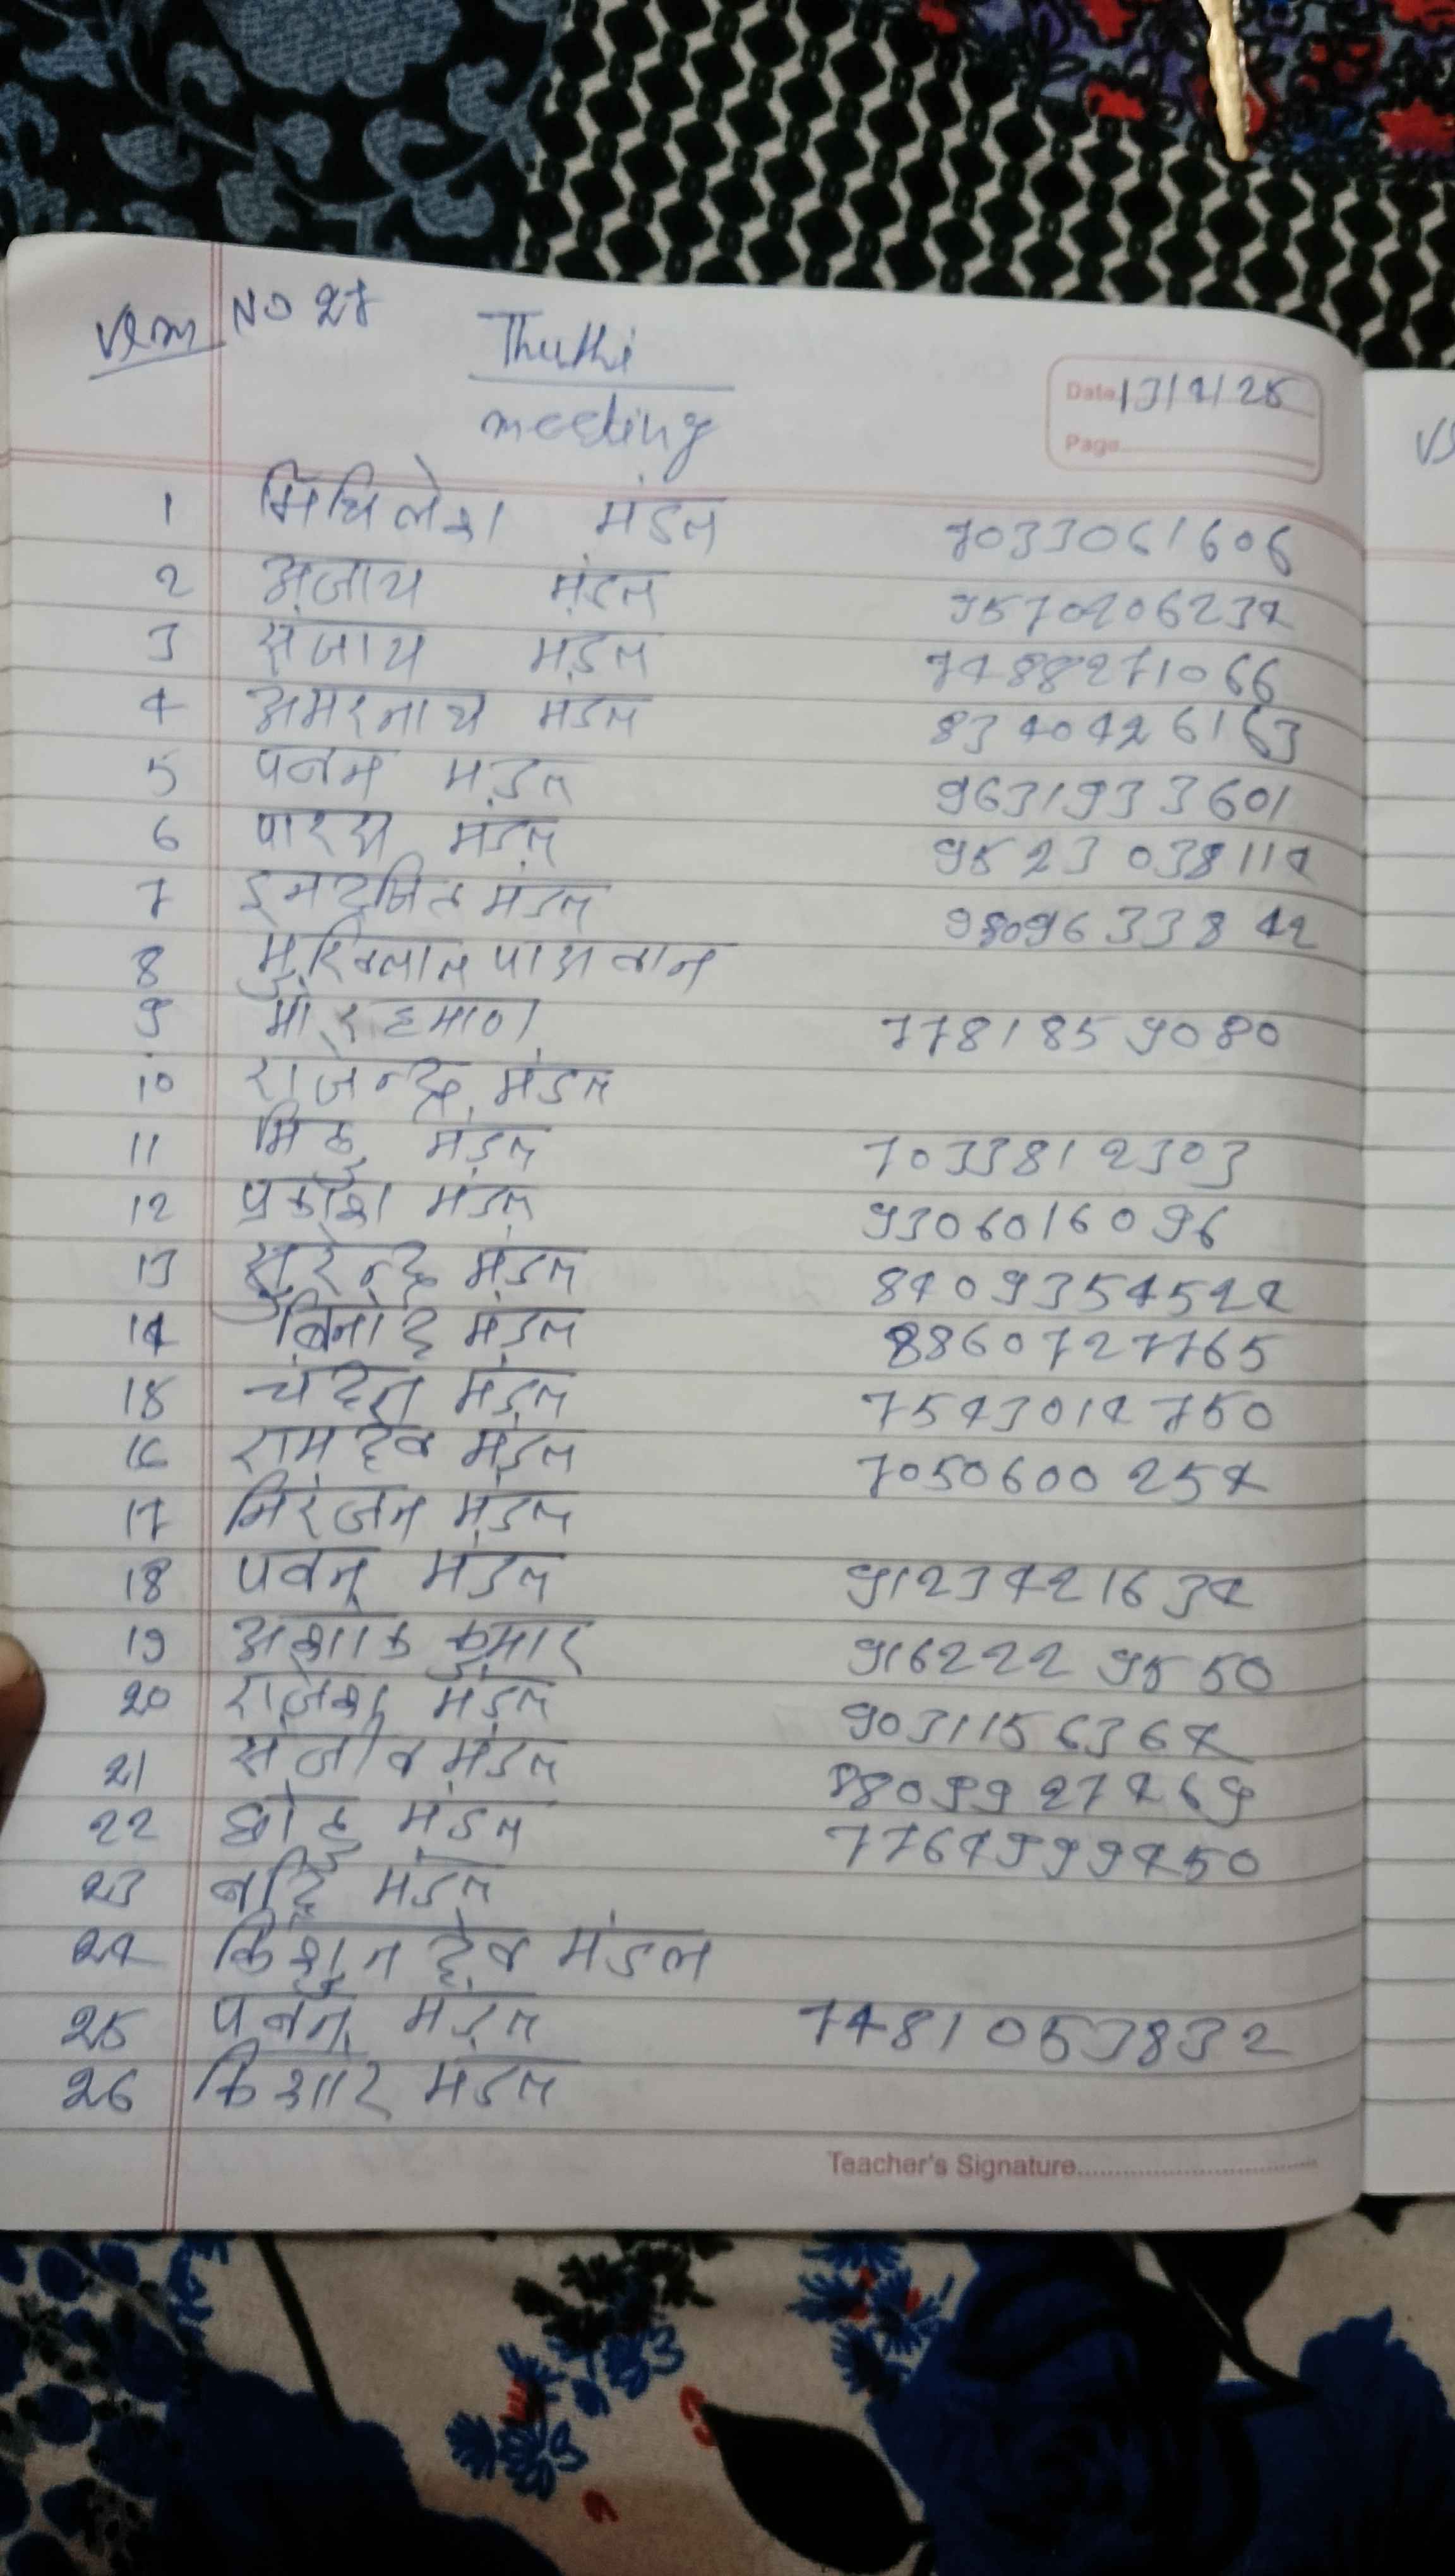 NO 27
Thuthi
meeting
Date 13/4/25
Page
1 मिथिलेश मंडल 7033061606
2 अजाय मंडल 9570206234
3 संजाय मंडल 7488271066
4 अमरनाथ मंडल 8340426163
5 पवन मंडल 9631933601
6 पारस मंडल 9523038114
7 इनद्रजित मंडल 9809633842
8 मुखिलाल पासवान
9 मो रहमान 7781859080
10 राजेन्द्र मंडल
11 मिठु मंडल 7033812303
12 प्रकाश मंडल 9306016096
13 सुरेन्द्र मंडल 8409354544
14 बिनोद मंडल 8860727765
15 चंदन मंडल 7543014750
16 रामदेव मंडल 7050600254
17 निरंजन मंडल
18 पवन मंडल 9123421634
19 अशोक कुमार 9162229550
20 राजेश मंडल 9031156364
21 संजीव मंडल 8809927469
22 छोटु मंडल 7764999450
23 मंडल
24 किशुन देव मंडल
25 पवन मंडल 7481053832
26 किशोर मंडल
Teacher's Signature